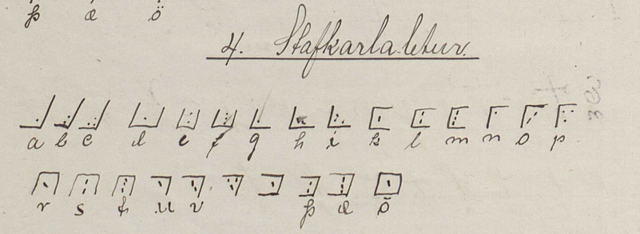 þ æ ö
4. Stafkarlaletur.
a b c d e f g h i k l m n o p
r s t u v þ æ ö